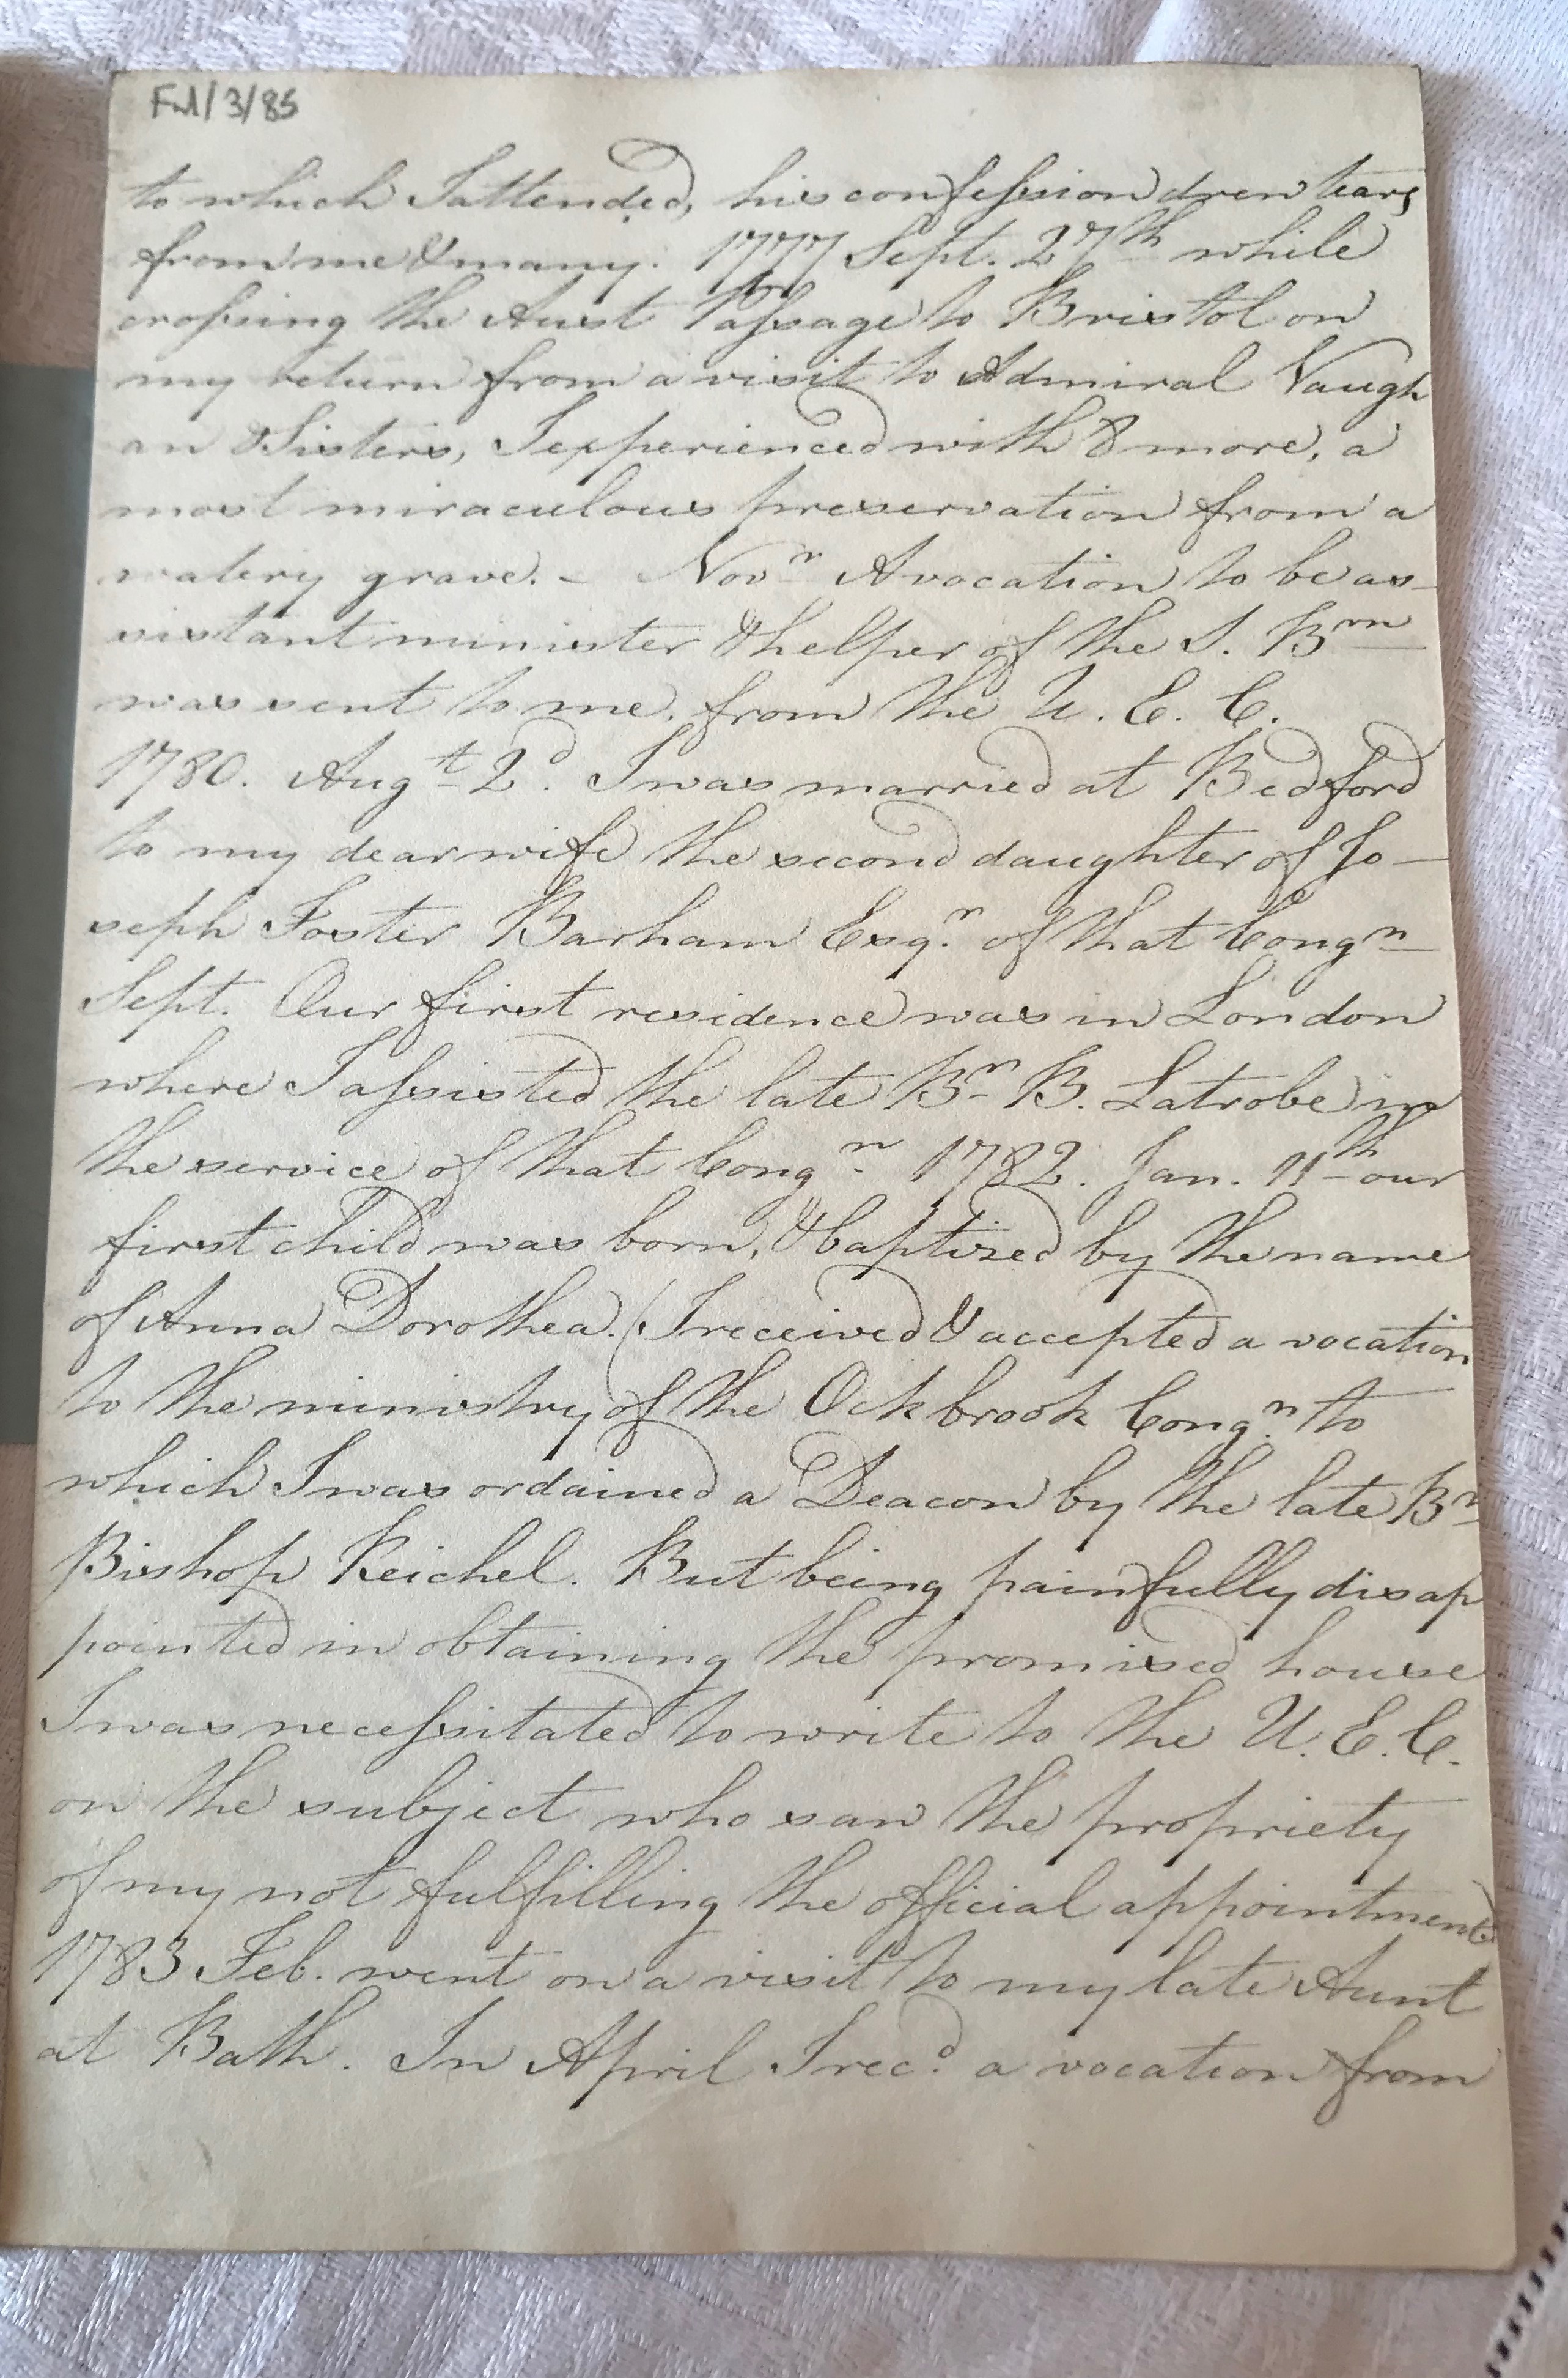 FM/3/85
to which I attended, his confession drew tears
from me & many. 1777 Sept. 27th while
crossing the Aust Passage to Bristol on
my return from a visit to Admiral Vaugh
an & Sisters, I experienced with 8 more, a
most miraculous preservation from a
watery grave. – Novr A vocation to be as-
sistant minister & helper of the S. Brn
was sent to me, from the U. E. C.
1780. Augt 2d. I was married at Bedford
to my dear wife the second daughter of Jo-
seph Foster Barham Esqr. of that Congn
Sept. Our first residence was in London
where I assisted the late Br B. Latrobe in
the service of that Congn. 1782. Jan. 11th our
first child was born, & baptized by the name
of Anna Dorothea. (I received & accepted a vocation
to the ministry of the Ockbrook Congn. to
which I was ordained a Deacon by the late Br
Bishop Reichel. But being painfully disap
pointed in obtaining the promised house
I was necessitated to write to the U. E. C.
on the subject who saw the propriety
of my not fulfilling the official appointment)
1783 Feb. went on a visit to my late Aunt
at Bath. In April I recd. a vocation from